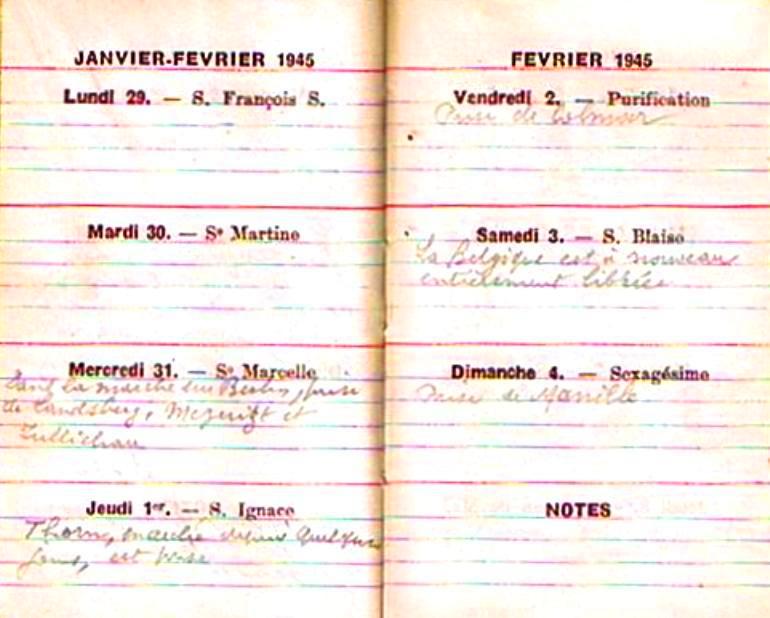 JANVIER-FEVRIER 1945
Lundi 29. — S. François S.
Mardi 30. — Sᵉ Martine
Mercredi 31. — Sᵉ Marcelle
Dans la marche sur Berlin, prise
de Landsberg, et
Zullichau
Jeudi 1ᵉʳ. — S. Ignace
Thorn, depuis quelques
jours, est prise
FEVRIER 1945
Vendredi 2. — Purification
Prise de Colmar
Samedi 3. — S. Blaise
La Belgique est à nouveau
entièrement libérée
Dimanche 4. — Sexagésime
Prise de Manille
NOTES